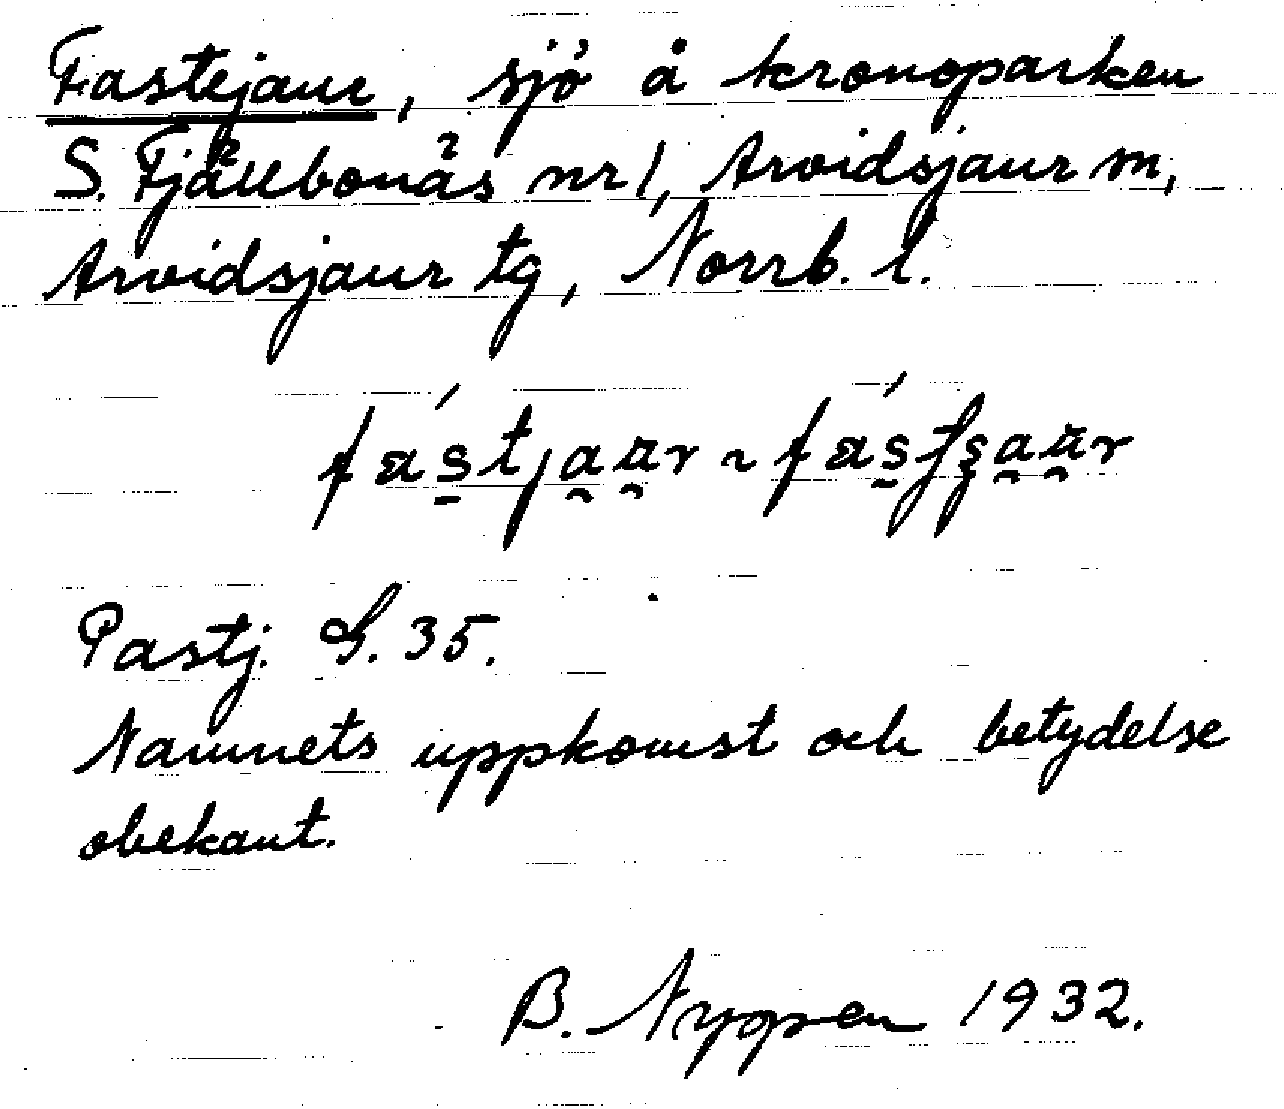 Fastejaur, sjö å kronoparken
S. Fjällbonäs nr 1, Arvidsjaur sn,
Arvidsjaur tg, Norrb. l.
Pastj. S. 35.
Namnets uppkomst och betydelse
obekant.
B. Nyppen 1932.